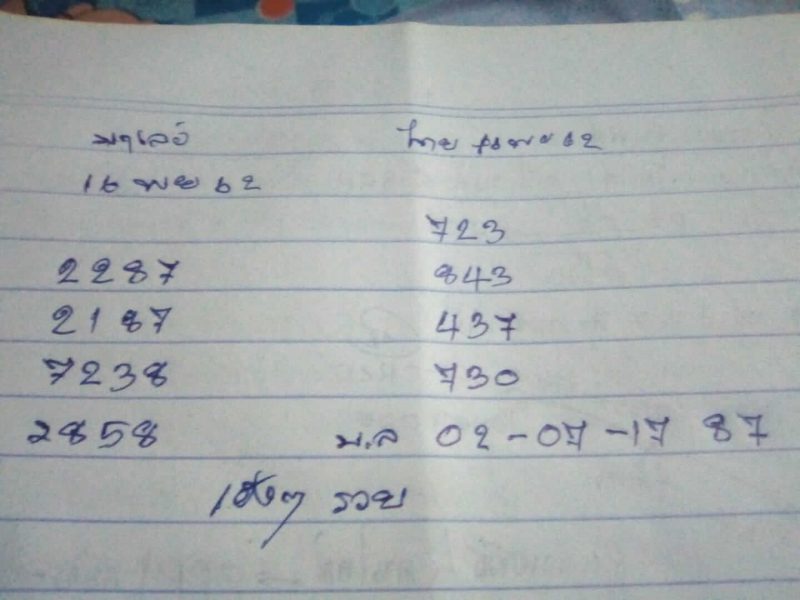 มาเลย์ ไทย 16 พย 62
16 พย 62
723
2287 843
2187 437
7238 730
2858 ม.ล 02-07-17 87
เฮงๆ รวย